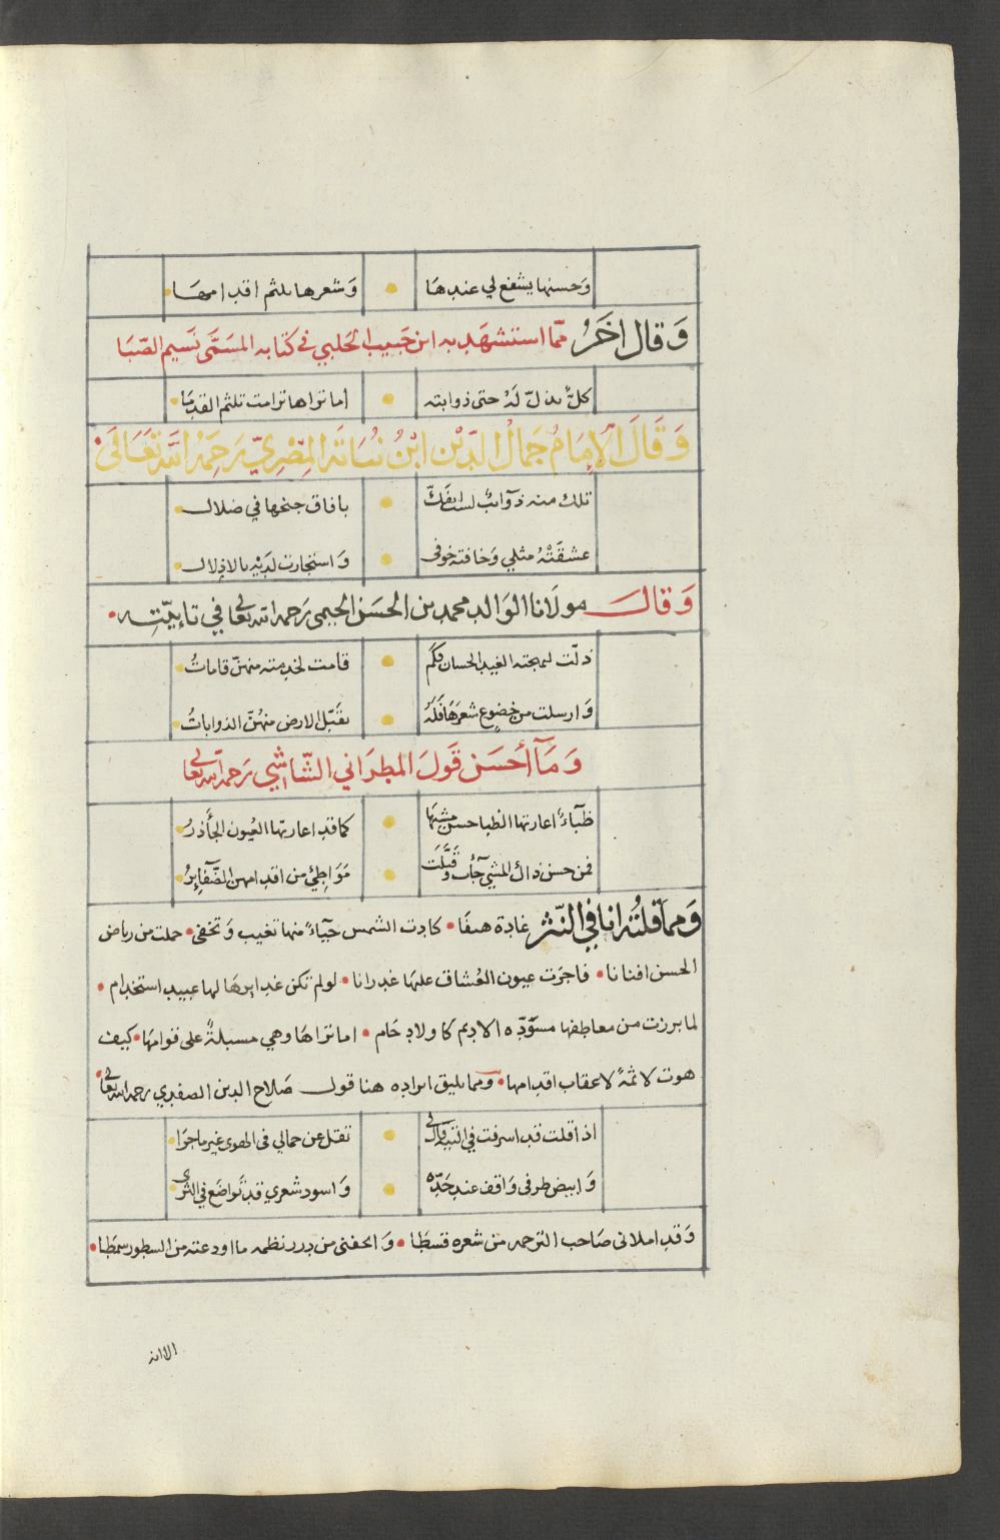 وَحسنها يشفع لي عندهَا • وَشعرها يلثم اقدامهَا •
وَقال اخَرُ ممّا استشهَد به ابن حَبيب الحَلبي في كتابه المسَمَّى نَسيم الصّبَا
كلٌّ يذلّ لَهُ حتى ذوابته • أما تراها ترامت تلثم القدمَا •
وَقَالَ الْاِمَامُ جَمالُ الدِّيْن ابْنُ نُبَاتَه المِصْريّ رَحِمَهُ اللّه تَعَالَى •
تلك منه ذوآئب لست انفكّ • بافاق جنحها في ضلال •
عشقَتْهُ مثلي وَخافته خوفي • وَاستجارت لدَيْه بالاذلال •
وَقال مولَانا الوَالد محمد بن الحسَن الحيمي رَحمه الله تعالى في تائيّتِه •
ذلّت لبهجته الغيد الحسان فكَم • قامت لخدمته منهنّ قاماتُ •
وَارسلت من خضوع شعرَهَا فَلَهُ • يقَبّل الارض منهُنّ الذوابات •
وَمَآ أحَسَن قَولَ المطرَاني الشّاشي رَحمه الله تعالى
ظبَآءٌ اعارتها الظبا حسن مشيهَا • كما قد اعارتها العُيون الجَأذرُ •
فمن حسن ذاك المشي جآءت وَقَبَّلَت • مَوَاطئ من اقدامهن الضّفَآيرُ •
وَمما قلتُه انا في النّثر غادة هيفَا • كادت الشمس حيَآءً منها تغيب وَتخفى • حملت من رياض
الحسن افنانا • فاجرَت عيون العُشاق عليهَا غدرانا • لو لم تكن غدايرهَا لها عبيد استخدام •
لما برزت من معاطفها مسوَدّه الاديم كاولاد حَام • اما تراهَا وهي مسبلةٌ على قوامهَا • كيف
هوت لاثمةً لاعقاب اقدامها • وَمما يليق ايراده هنا قول صَلاح الدين الصفدي رحمه الله تعالى •
اذا قلت قد اسرفت في التيه والى • تقل عن جمالي في الهوى غير ما جرَا •
وَابيض طرفي وَاقف عند حَدّه • وَاسود شعري قد تَواضَع في الثرى •
وَقد املاني صَاحب الترجمه من شعره قسطًا • وَاتحفني من درر نظمه ما اودعته من السطور سمطًا •
الا انه